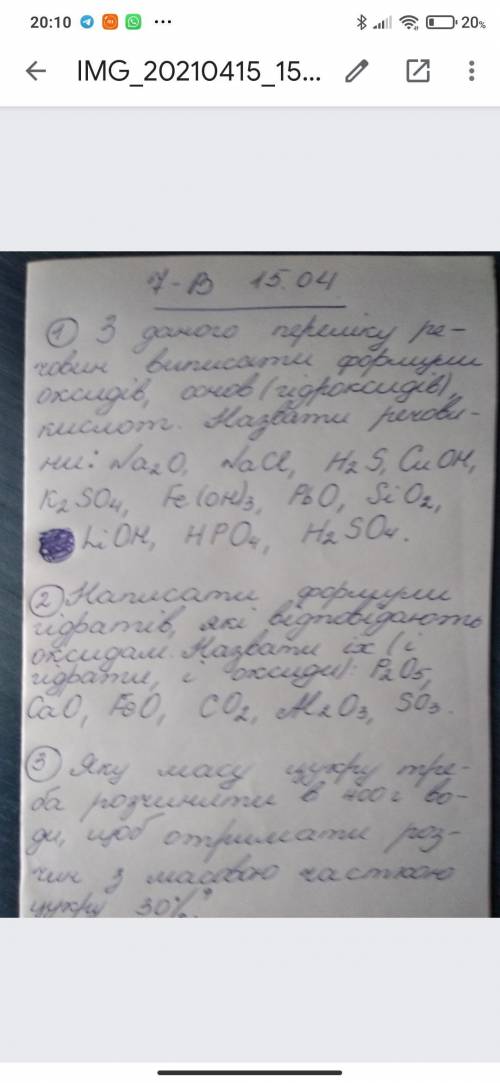 20:10 20%
IMG_20210415_15...
7-В 15.04
① З даного переліку ре-
човин виписати формули
оксидів, основ (гідроксидів),
кислот. Назвати речови-
ни: Na₂O, NaCl, H₂S, CuOH,
K₂SO₄, Fe(OH)₃, PbO, SiO₂,
LiOH, HPO₄, H₂SO₄.
② Написати формули
гідратів, які відповідають
оксидам. Назвати їх (і
гідрати, і оксиди): P₂O₅,
CaO, FeO, CO₂, Al₂O₃, SO₃.
③ Яку масу цукру тре-
ба розчинити в 400 г во-
ди, щоб отримати роз-
чин з масовою часткою
цукру 30%?